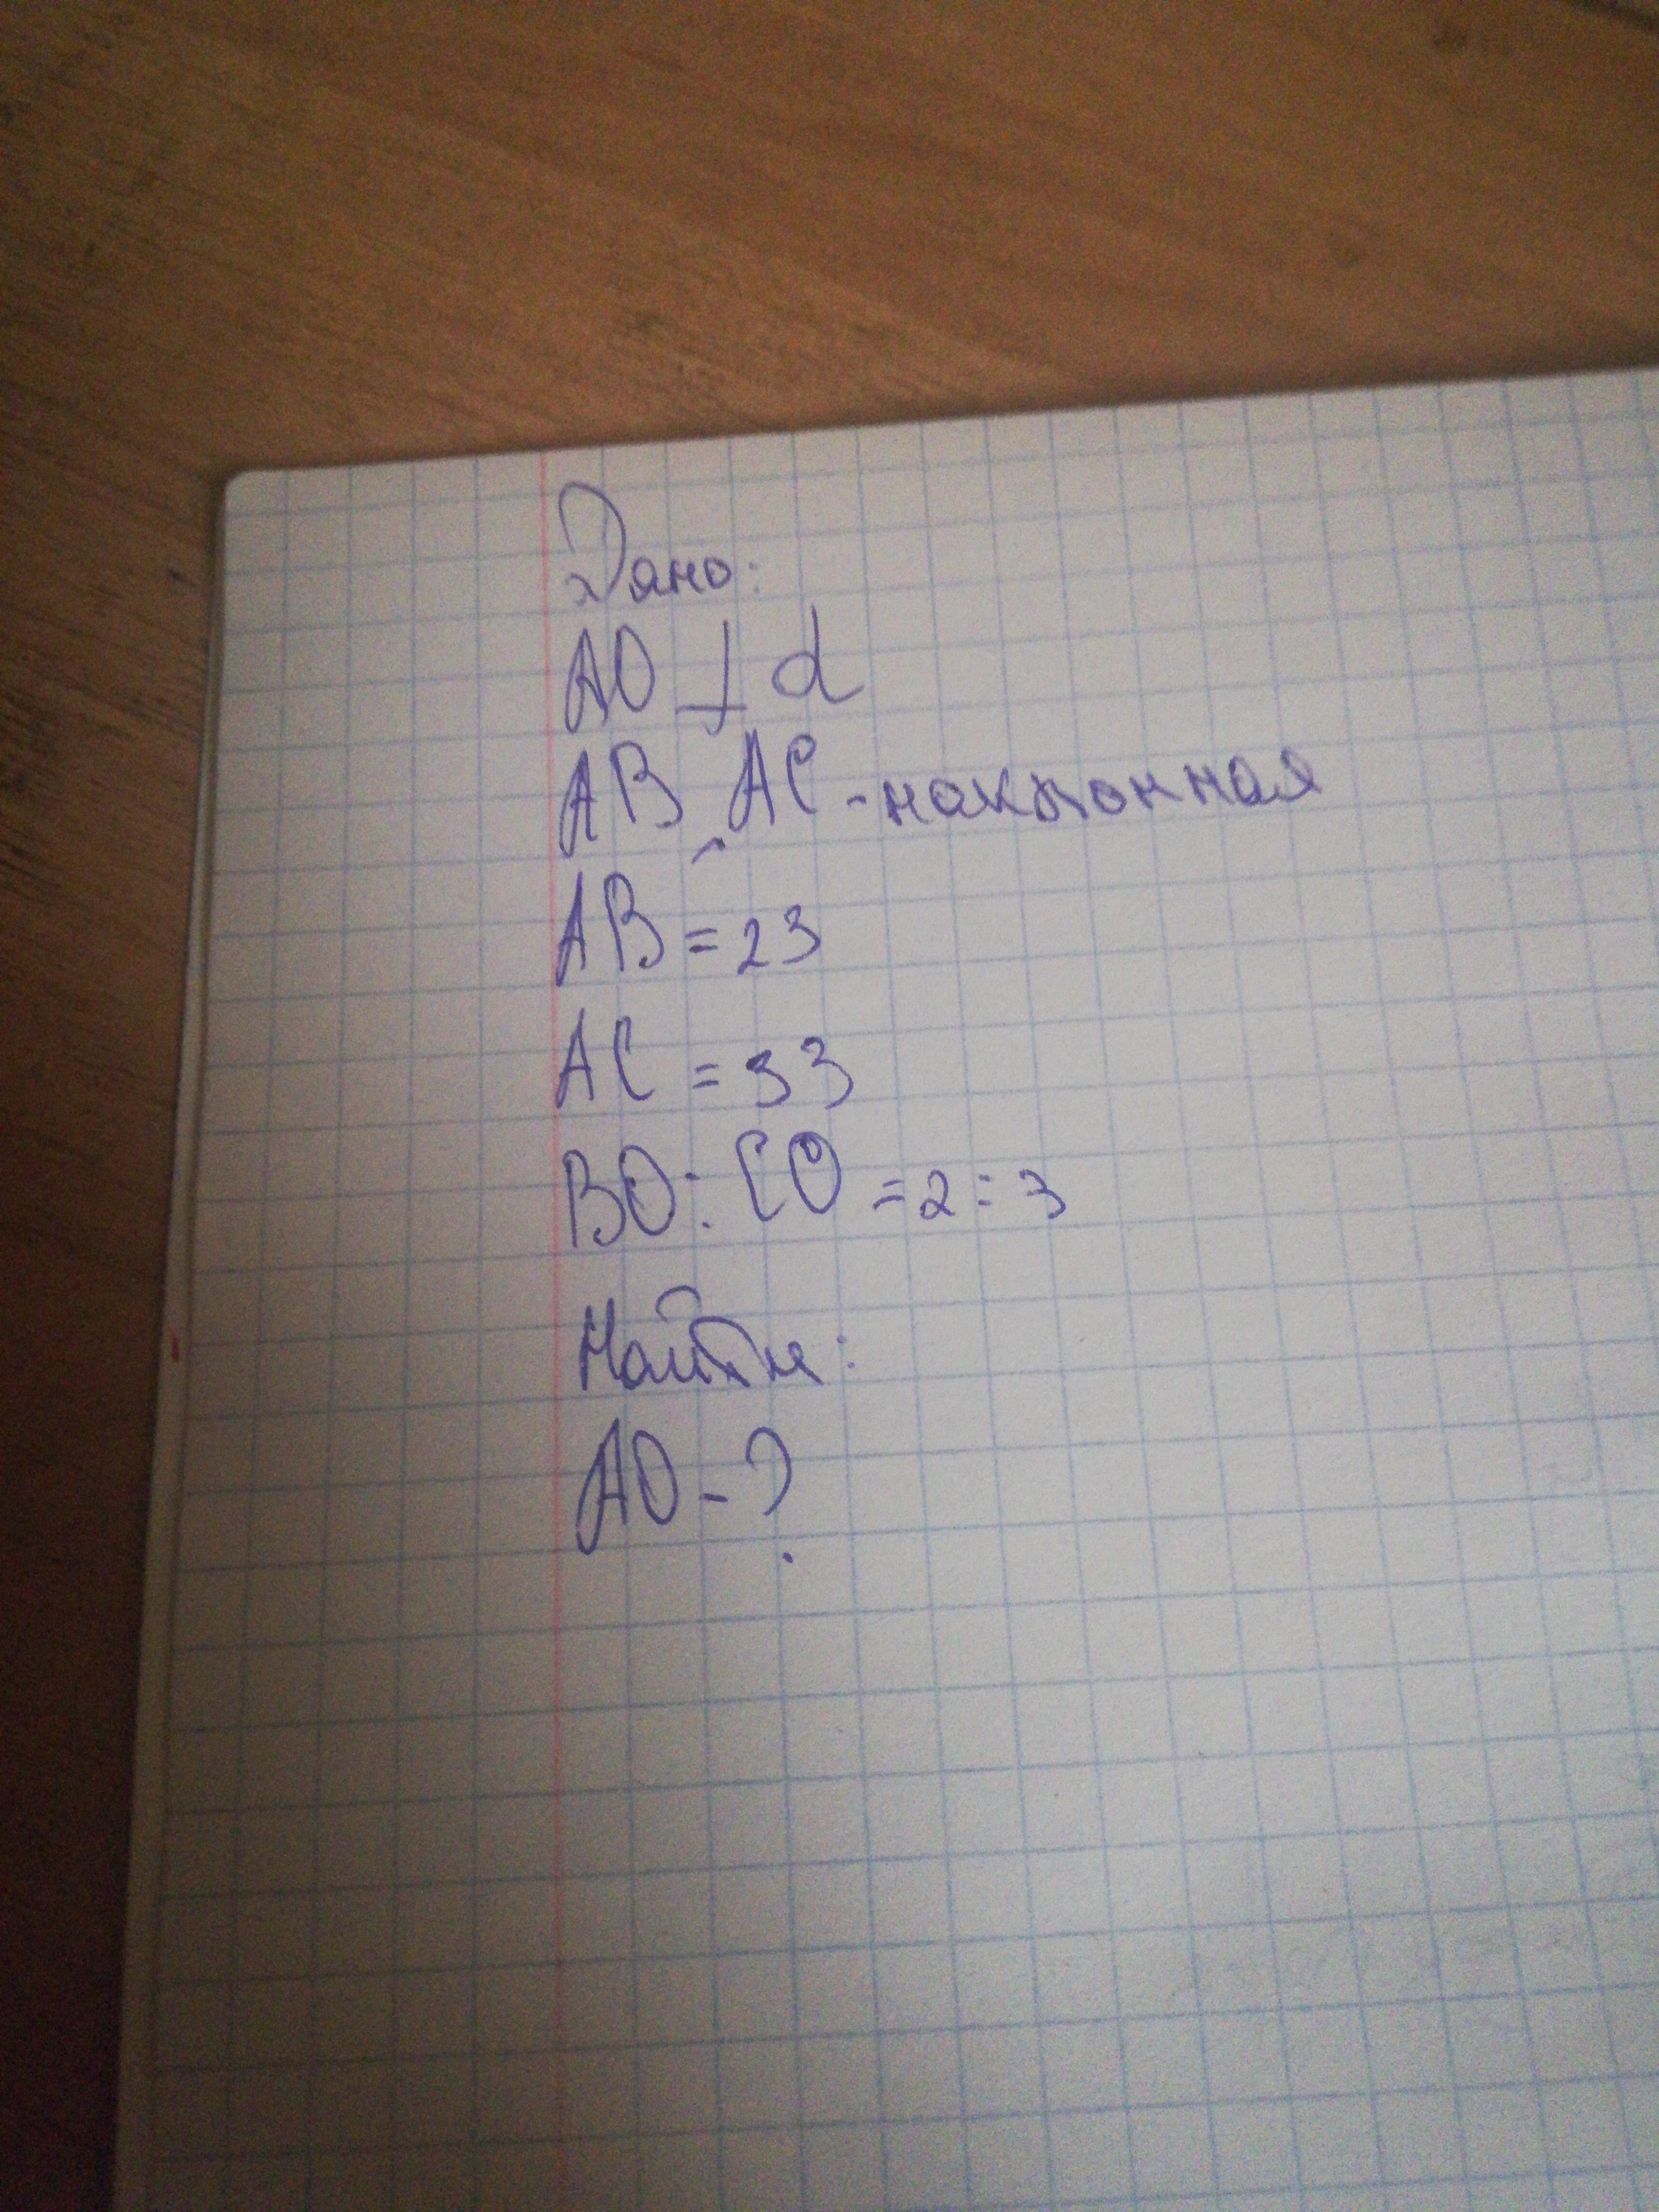 Дано:
AO ⊥ α
AB, AC - наклонная
AB = 23
AC = 33
BO : CO = 2 : 3
Найти:
AO - ?